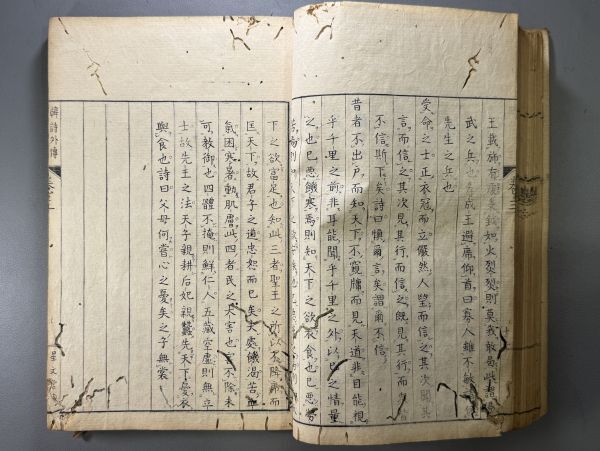 王載旆有虔秉鉞如火烈烈則莫我敢曷此謂
武之兵也孝成王避席仰首曰寡人雖不敏請
先生之兵也
受命之士正衣冠而立儼然人望而信之其次聞其
言而信之其次見其行而信之既見其行而
不信斯下矣詩曰慎爾言矣謂爾不信
昔者不出戶而知天下不窺牖而見天道非目能視
乎千里之前非耳能聞乎千里之外以己之情量
之也己惡饑寒焉則知天下之欲衣食也己惡勞
苦焉則知天下之欲
下之欲富足也知此三者聖王之所以不降席而
匡天下故君子之道忠恕而已矣夫處饑渴苦血
氣困寒暑動肌膚此四者民之大害也害不除未
可教御也四體不掩則鮮仁人五藏空虛則無立
士故先王之法天子親耕后妃親蠶先天下憂衣
與食也詩曰父母何嘗心之憂矣之子無裳
韓詩外傳
卷三